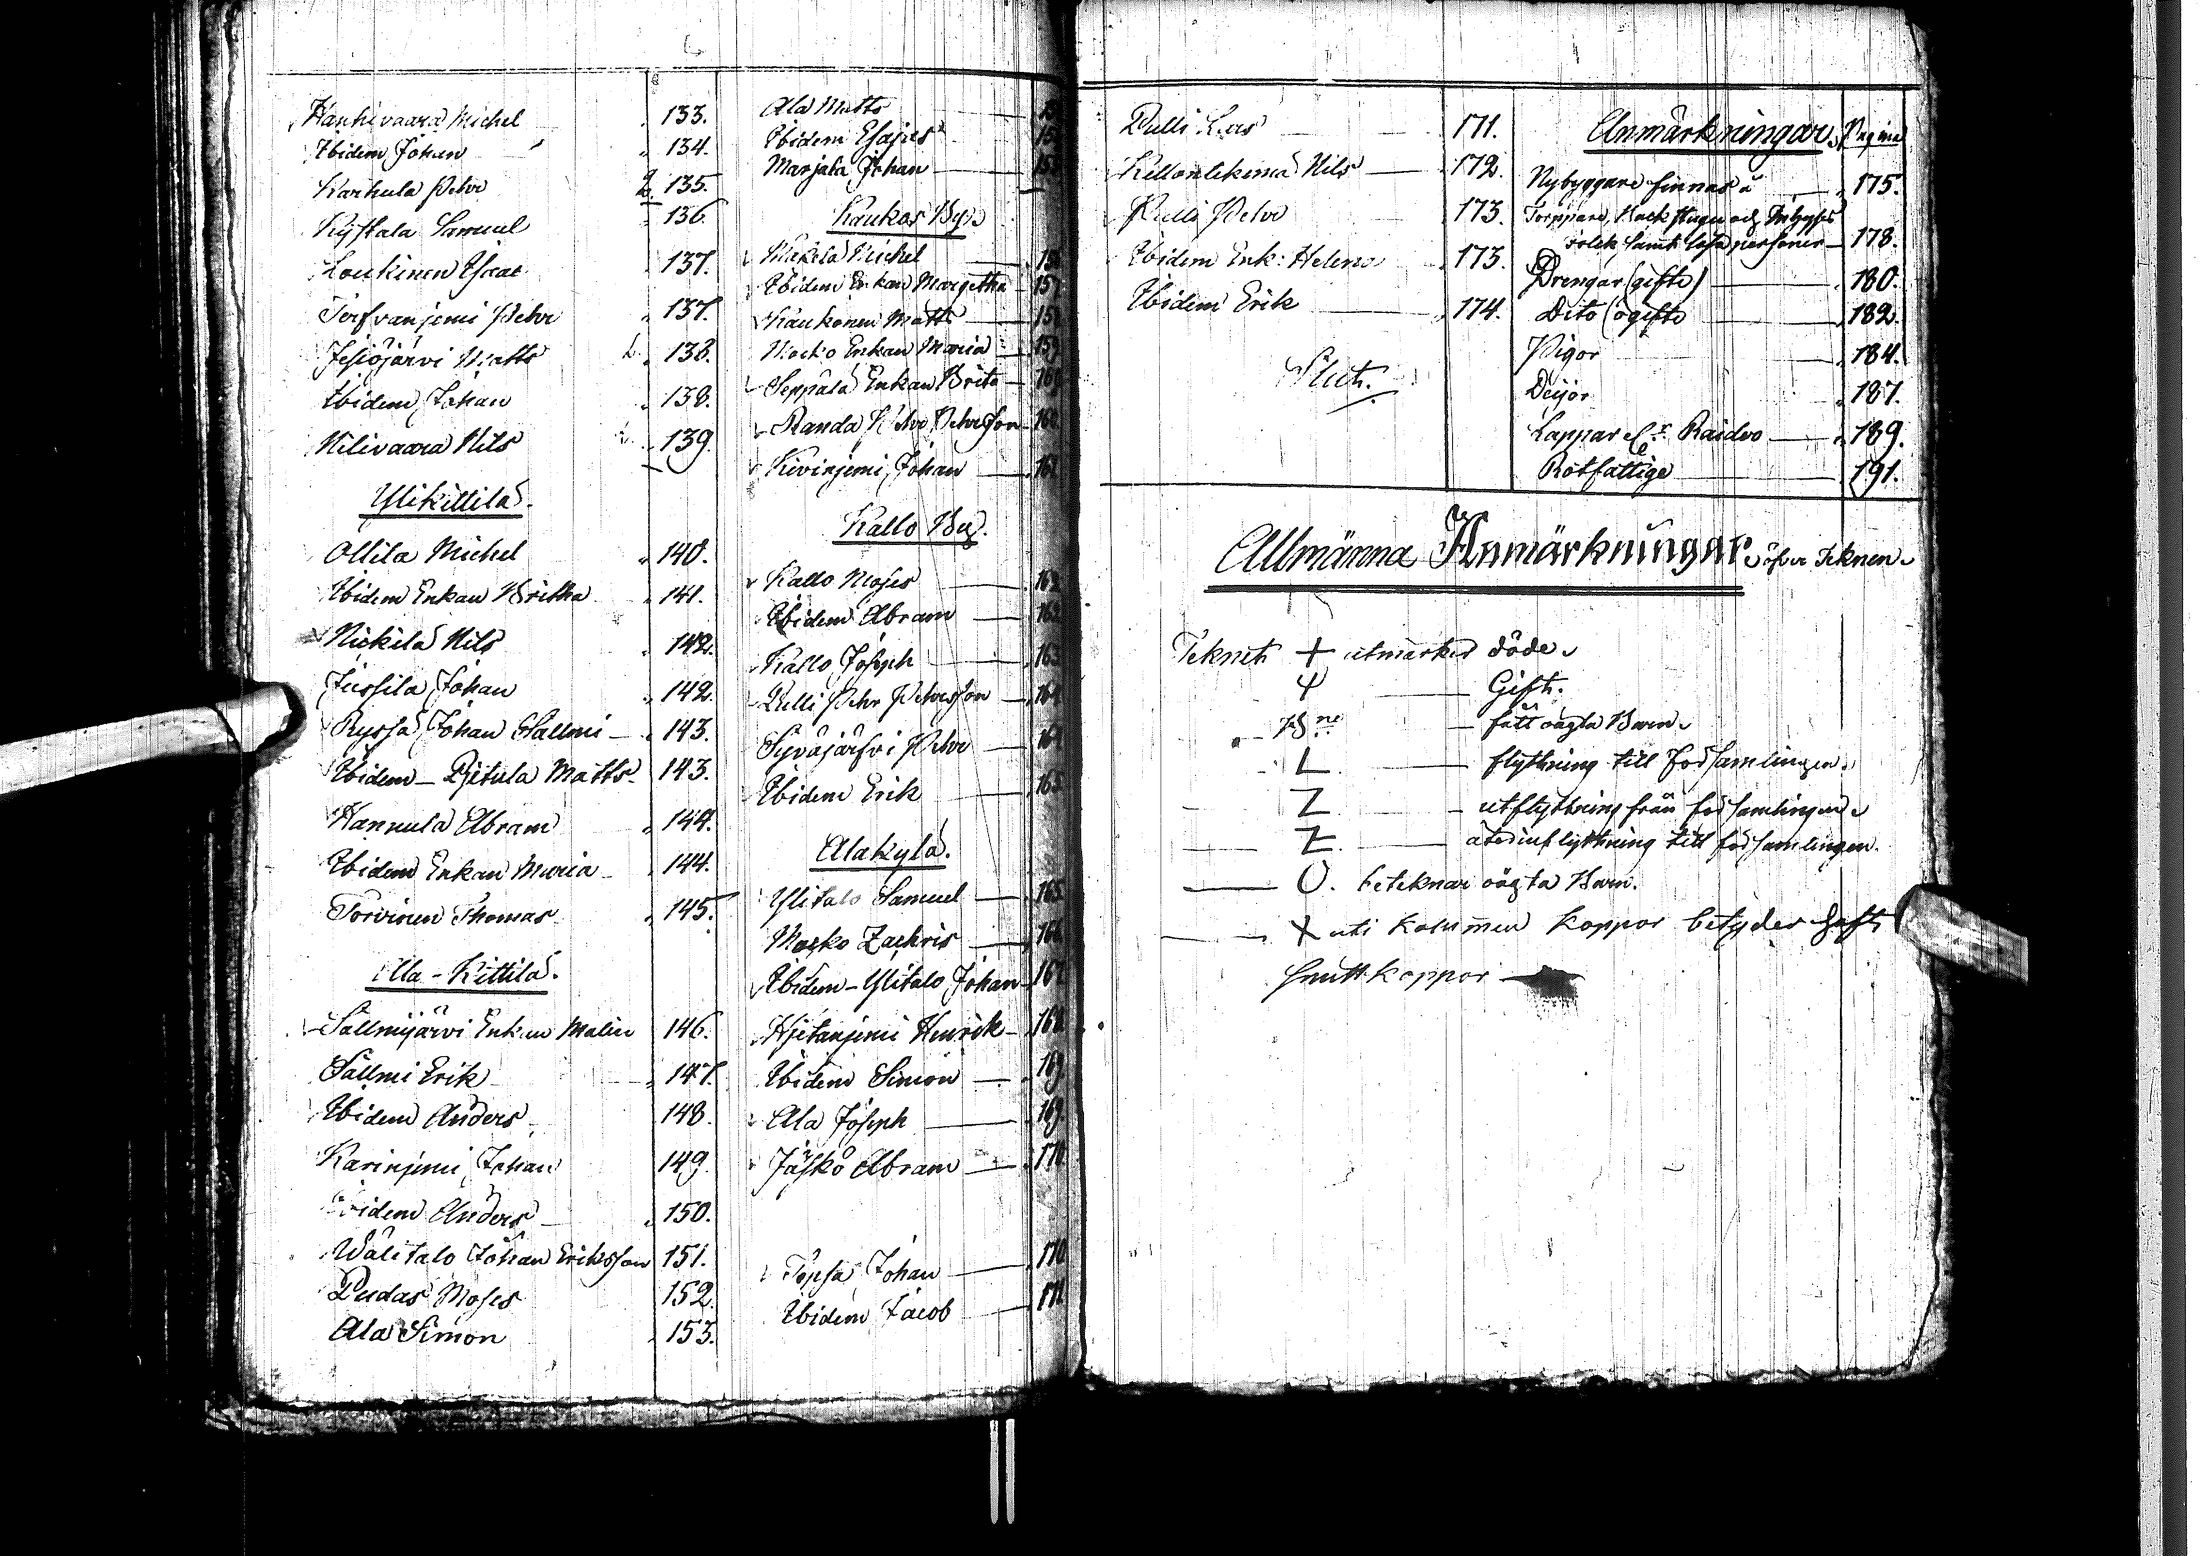 Hanhivaara Michel 133.
Ibidem Johan 134.
Karhula Pehr 135.
Kystala Samuel 136.
Loukinen Esaac 137.
Torfvanjemi Pehr 137.
Jesiöjärvi Matts 138.
Ibidem Johan 138.
Nilivaara Nils 139.
Ylikittilä.
Ollila Michel 140.
Ibidem Enkan Britha 141.
Nickilä Nils 142.
Jussila Johan 142.
Ryssä Johan Sallmi 143.
Ibidem – Pjetula Matts 143.
Hannula Abram 144.
Ibidem Enkan Maria 144.
Torvinen Thomas 145.
Ala-Kittilä.
Sallmijärvi Enkan Malin 146.
Sallmi Erik 147.
Ibidem Anders 148.
Karinjemi Johan 149.
Ibidem Anders 150.
Wälitalo Johan Eriksson 151.
Pudas Moses 152.
Ala Simon 153.
Ala Matts
Ibidem Esajas
Marjala Johan
Kaukos By.
Mäkelä Michel
Ibidem Enkan Margetha
Kaukonen Matts
Macko Enkan Maria 159
Seppälä Enkan Brita
Randa Pehr Pehrsson 160
Kivinjemi Johan
Kallo By.
Kallo Moses 162
Ibidem Abram
Kallo Joseph 163
Pulli Pehr Pehrsson 164
Syväjärfvi Pehr 164
Ibidem Erik 165
Alakylä.
Ylitalo Samuel 165
Macko Zachris 166
Ibidem – Ylitalo Johan 167
Hjetanjemi Henrik 168
Ibidem Simon 169
Ala Joseph 169
Jääskö Abram 170
Topsa Johan 170
Ibidem Jacob 171
Pulli Lars 171.
Killonlekemä Nils 172.
Pulli Pehr 173.
Ibidem Enk: Helena 173.
Ibidem Erik 174.
Slut.
Anmärkningar. Pagina
Nybyggare finnas å 175.
Torppare, Backstugu och Inhyses
folck samt lösa personer 178.
Drengar (gifte) 180.
Dito (ogifte 182.
Pigor 184.
Deijor 187.
Lappar el:r Raidvo 189.
Rotfattige 191.
Allmänna Anmärkningar öfver Teknen.
Teknet + utmärker döde.
Ψ Gift.
B:ne fått oägta Barn.
L flyttning till församlingen.
Z utflyttning från församlingen.
Z återinflyttning till församlingen.
O. beteknar oägta Barn.
X uti kolumnen koppor betyder haft
smittkoppor